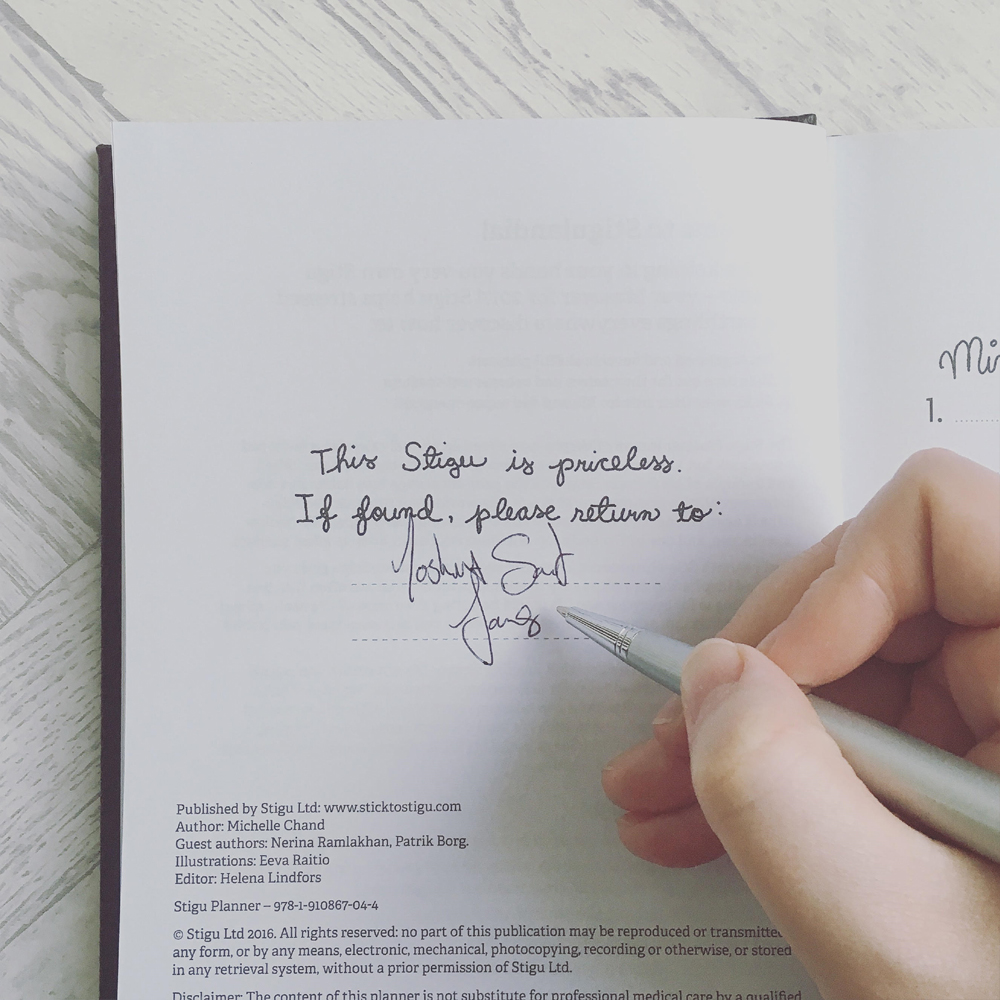 This Stigu is priceless.
If found, please return to:
Mi
1.
Published by Stigu Ltd: www.sticktostigu.com
Author: Michelle Chand
Guest authors: Nerina Ramlakhan, Patrik Borg.
Illustrations: Eeva Raitio
Editor: Helena Lindfors
Stigu Planner – 978-1-910867-04-4
© Stigu Ltd 2016. All rights reserved: no part of this publication may be reproduced or transmitted
any form, or by any means, electronic, mechanical, photocopying, recording or otherwise, or stored
in any retrieval system, without a prior permission of Stigu Ltd.
Disclaimer: The content of this planner is not substitute for professional medical care by a qualified